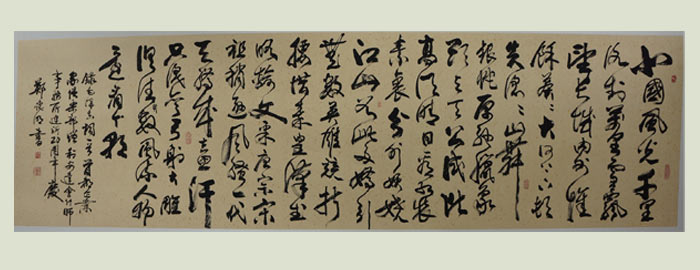 北國風光千里
冰封萬里雪飄
望長城內外惟
餘莽莽大河上下頓
失滔滔山舞
銀蛇原馳蠟象
欲與天公試比
高須晴日看紅裝
素裹分外妖嬈
江山如此多嬌引
無數英雄競折
腰惜秦皇漢武
略輸文采唐宗宋
祖稍遜風騷一代
天驕成吉思汗
只識彎弓射大雕
俱往矣數風流人物
還看今朝